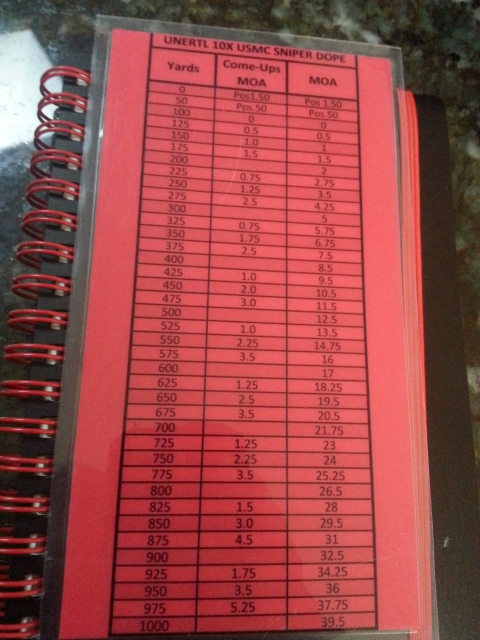 UNERTL 10X USMC SNIPER DOPE
Yards Come-Ups MOA MOA
0 Pos1.50 Pos 1.50
50 Pos.50 Pos.50
100 0 0
125 0.5 0.5
150 1.0 1
175 1.5 1.5
200 2
225 0.75 2.75
250 1.25 3.5
275 2.5 4.25
300 5
325 0.75 5.75
350 1.75 6.75
375 2.5 7.5
400 8.5
425 1.0 9.5
450 2.0 10.5
475 3.0 11.5
500 12.5
525 1.0 13.5
550 2.25 14.75
575 3.5 16
600 17
625 1.25 18.25
650 2.5 19.5
675 3.5 20.5
700 21.75
725 1.25 23
750 2.25 24
775 3.5 25.25
800 26.5
825 1.5 28
850 3.0 29.5
875 4.5 31
900 32.5
925 1.75 34.25
950 3.5 36
975 5.25 37.75
1000 39.5